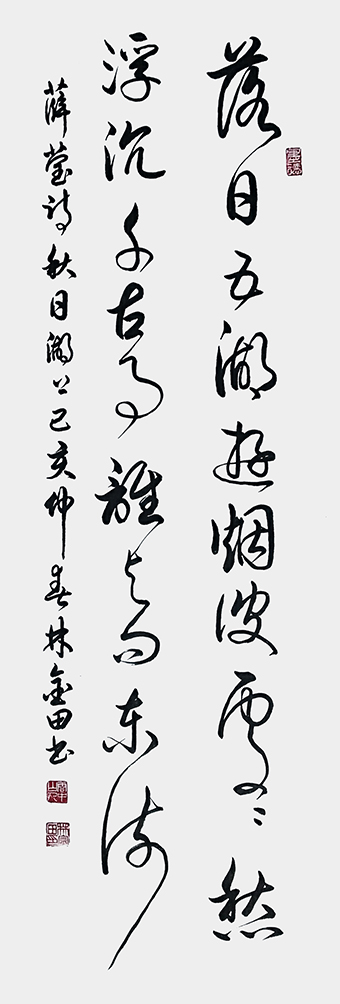 落日五湖遊烟波處々愁
浮沉千古事誰与问东流
薛莹诗秋日湖上己亥仲春林金田书